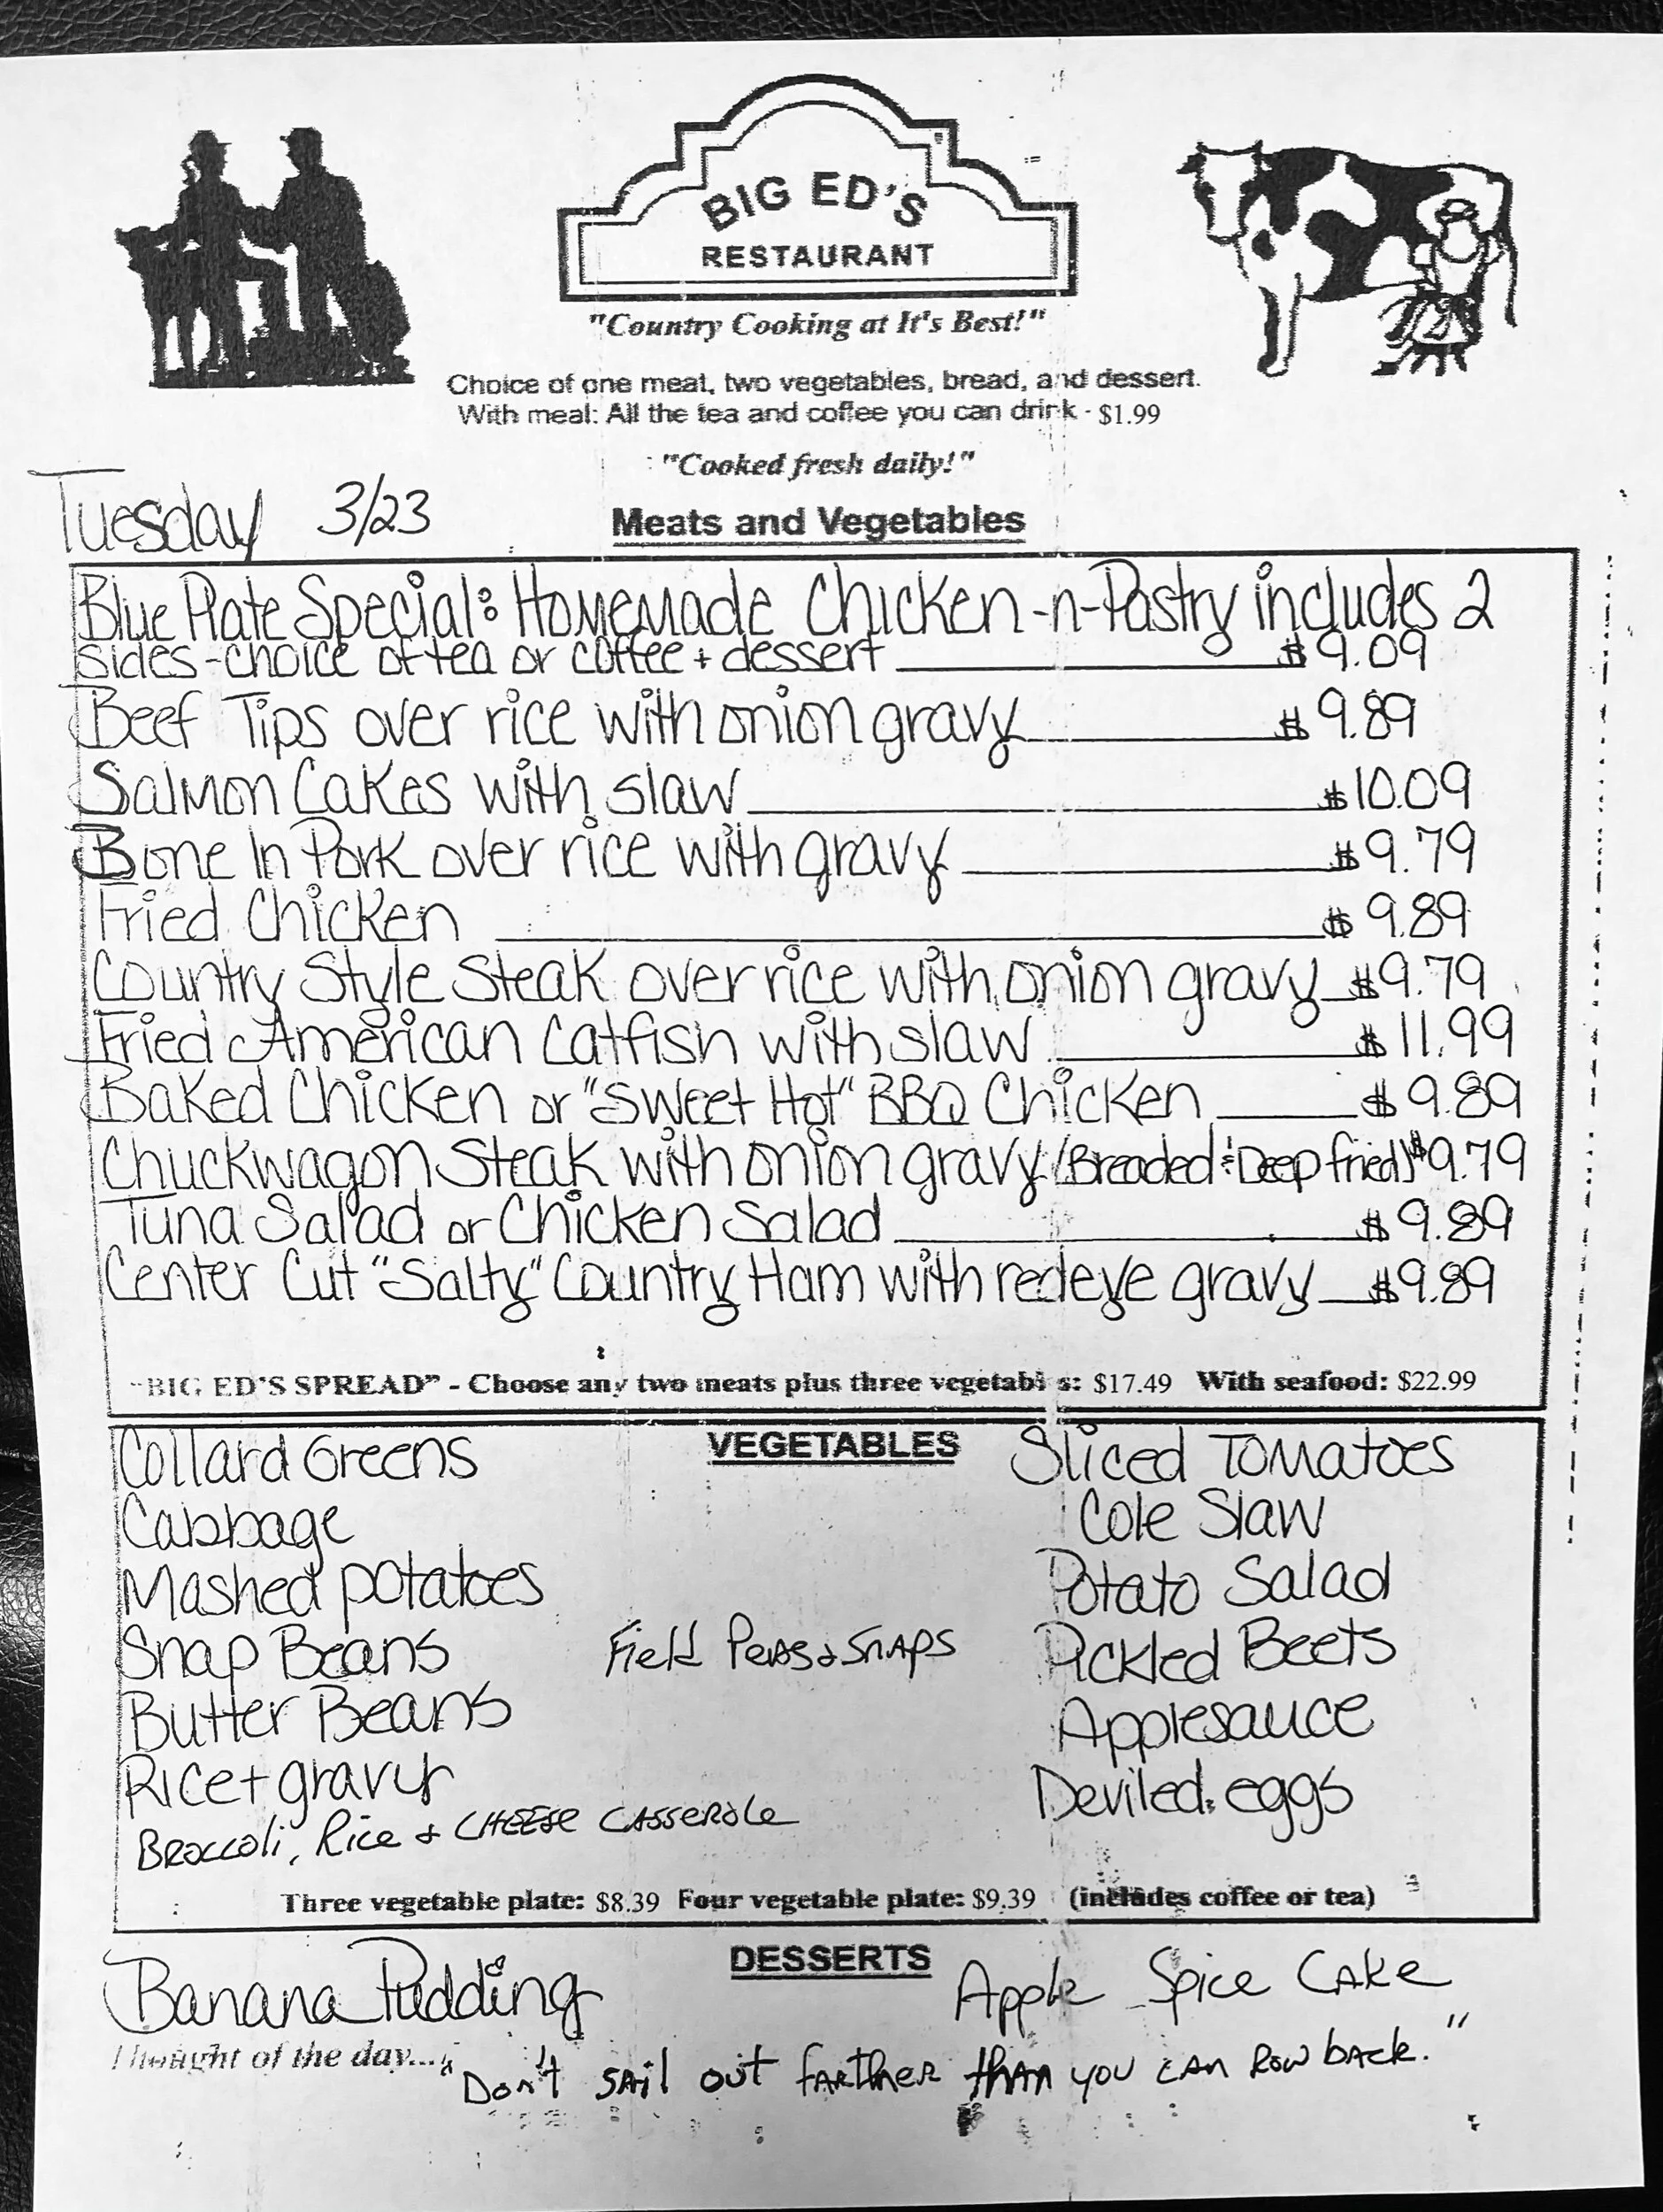 BIG ED'S
RESTAURANT
"Country Cooking at It's Best!"
Choice of one meat, two vegetables, bread, and dessert.
With meal: All the tea and coffee you can drink - $1.99
"Cooked fresh daily!"
Tuesday 3/23
Meats and Vegetables
Blue Plate Special: Homemade Chicken-n-Pastry includes 2
sides-choice of tea or coffee + dessert $9.09
Beef Tips over rice with onion gravy $9.89
Salmon Cakes with slaw $10.09
Bone In Pork over rice with gravy $9.79
Fried Chicken $9.89
Country Style Steak over rice with onion gravy $9.79
Fried American Catfish with slaw $11.99
Baked Chicken or "Sweet Hot" BBQ Chicken $9.89
Chuckwagon Steak with onion gravy (Breaded & Deep fried) $9.79
Tuna Salad or Chicken Salad $9.89
Center Cut "Salty" Country Ham with redeye gravy $9.89
"BIG ED'S SPREAD" - Choose any two meats plus three vegetables: $17.49 With seafood: $22.99
VEGETABLES
Collard Greens
Cabbage
Mashed potatoes
Snap Beans
Butter Beans
Rice + gravy
Broccoli, Rice & CHEESE CASSEROLE
Field Peas & Snaps
Sliced Tomatoes
Cole Slaw
Potato Salad
Pickled Beets
Applesauce
Deviled eggs
Three vegetable plate: $8.39 Four vegetable plate: $9.39 (includes coffee or tea)
DESSERTS
Banana Pudding
Apple Spice Cake
Thought of the day... "Don't sail out farther than you can row back."